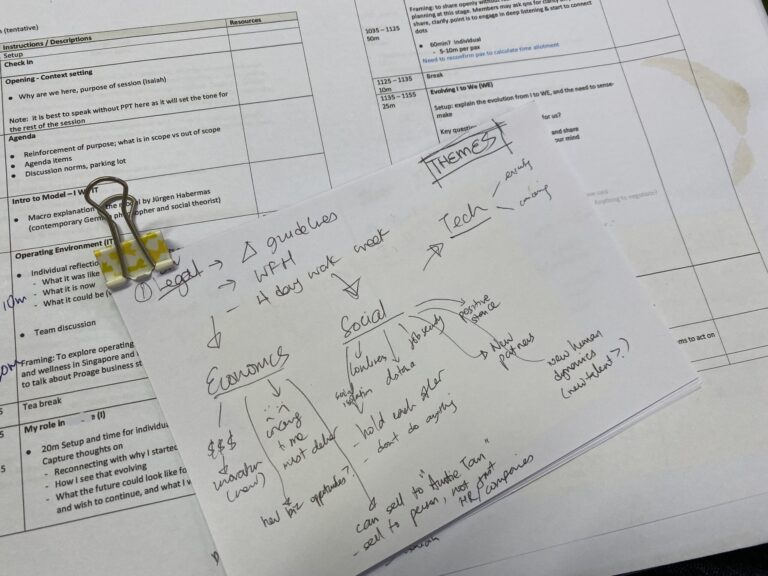 (tentative)
Instructions / Descriptions
Resources
Setup
Check In
Opening - Context setting
Why are we here, purpose of session (Isaiah)
Note: it is best to speak without PPT here as it will set the tone for
the rest of the session
Agenda
Reinforcement of purpose; what is in scope vs out of scope
Agenda items
Discussion norms, parking lot
Intro to Model – I
IT
Macro explanation
model by Jürgen Habermas
(contemporary German philosopher and social theorist)
Operating Environment (IT
Individual reflectio
- What it was like
- What it is now
- What it could be
Team discussion
Framing: To explore operating
and wellness in Singapore and
to talk about Proage business st
Tea break
My role in
(I)
20m Setup and time for individual
Capture thoughts on
- Reconnecting with why I started
- How I see that evolving
- What the future could look like fo
and wish to continue, and what I
10m
1035 – 1125
50m
Framing: to share openly without
planning at this stage. Members may ask qns for clarity
share, clarify point is to engage in deep listening & start to connect
dots
60min? individual
- 5-10m per pax
Need to reconfirm pax to calculate time allotment
1125 – 1135
10m
Break
1135 – 1155
25m
Evolving I to We (WE)
Setup: explain the evolution from I to WE, and the need to sense-
make
Key question
for us?
and share
our mind
Anything to negotiate?
ms to act on
THEMES
① Legal → Δ guidelines
→ WFH
- 4 day work week
Tech
Social
Economics
$$$
innovation
(new)
time
must deliver
new biz opportunities?
social
isolation
- hold each other
- don't do anything
job security
positive
stance
New
partners
new human
dynamics
(new talent?)
can sell to "Auntie Tan"
- sell to person, not just
HR / companies